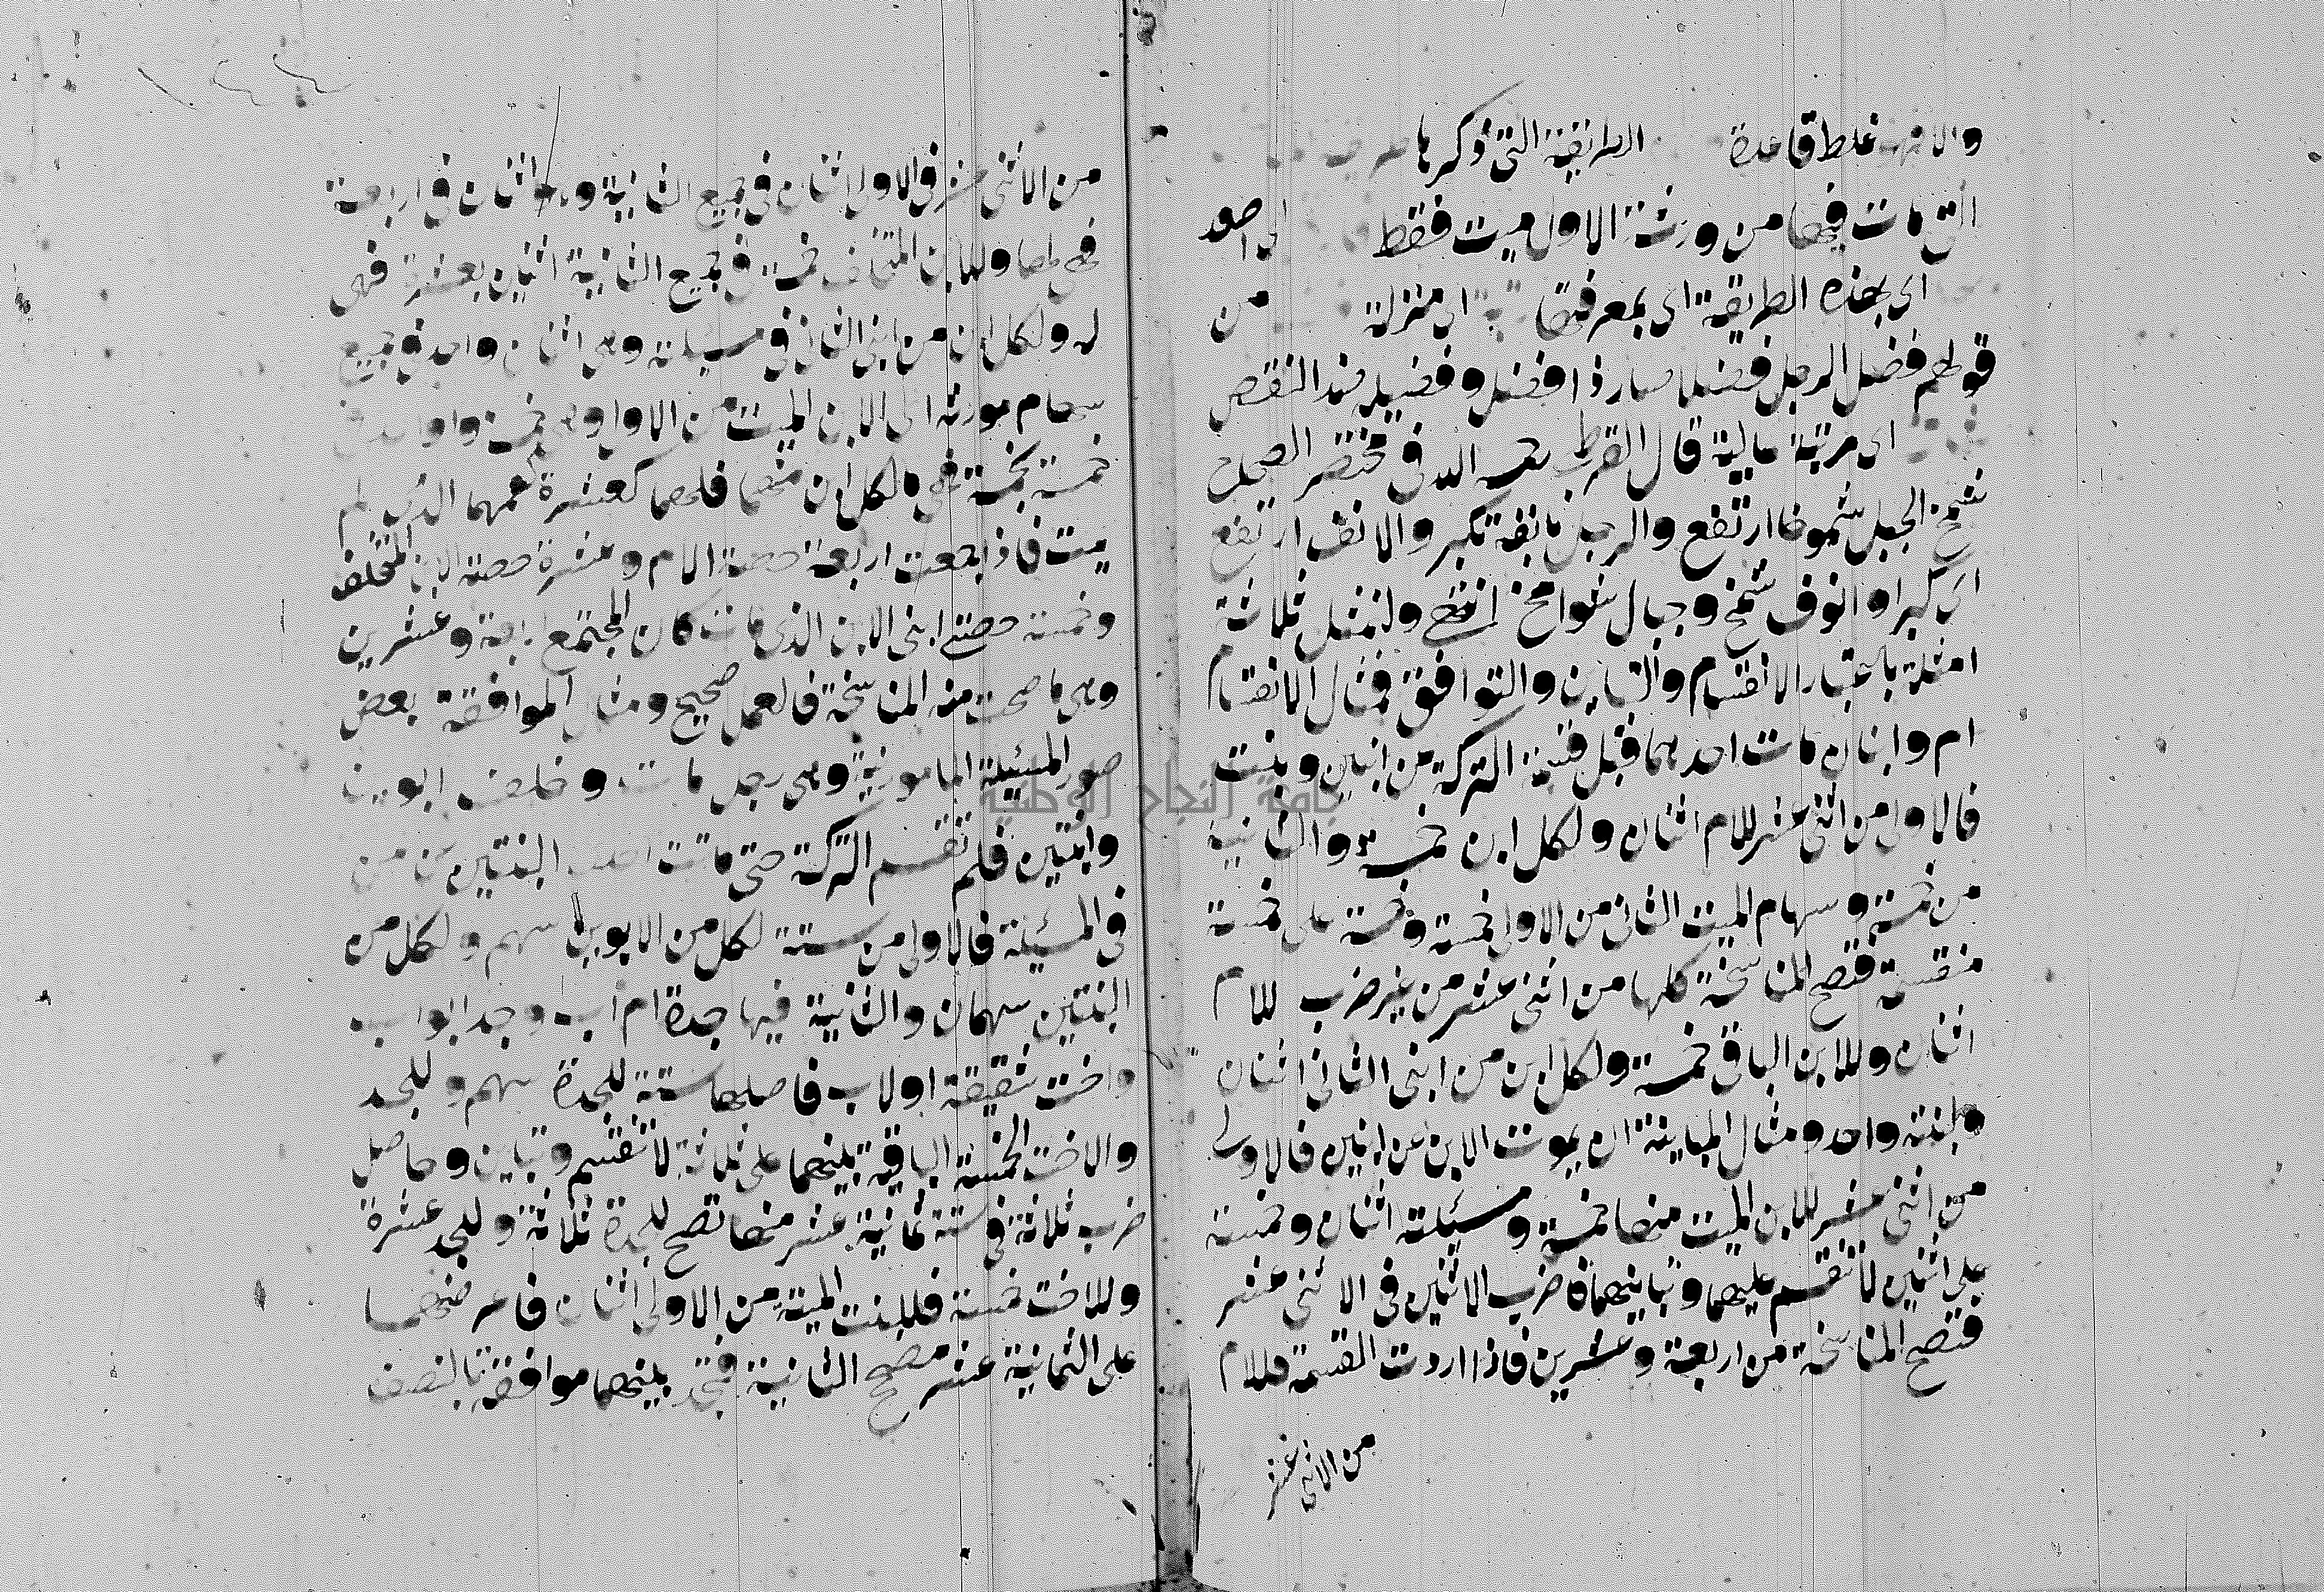 والا فهو غلط قاعدة الطريقة التي ذكرها
التي مات فيها من ورثة الاول ميت فقط
اي بهذه الطريقة اي بمعرفتها اي منزلة من
قولهم فضل الرجل فضلا صار ذا فضل وفضيلة ضد النقص
اي مرتبة عالية قال القرطبي رحمه الله في مختصر الصحاح
شمخ الجبل شموخا ارتفع والرجل بانفه تكبر والانف ارتفع
اي كبرا وانوف شمخ وجبال شوامخ انتهى ولنمثل ثلاثة
امثلة باعتبار الانقسام والتباين والتوافق فمثال الانقسام
ام وابنان مات احدهما قبل قسمة التركة عن ابنين وبنت
فالاولى من اثني عشر للام اثنان ولكل ابن خمسة والثانية
من خمسة وسهام الميت الثاني من الاولى خمسة وخمسة على خمسة
منقسمة فتصح المناسخة كلها من اثني عشر من غير ضرب للام
اثنان وللابن الباقي خمسة ولكل ابن من ابني الثاني اثنان
ولبنته واحد ومثال المباينة ان يموت الابن عن ابنين فالاولى
من اثني عشر للابن الميت منها خمسة ومسئلته اثنان وخمسة
على اثنين لا تنقسم عليهما وتباينهما فاضرب الاثنين في الاثني عشر
فتصح المناسخة من اربعة وعشرين فاذا اردت القسمة فللام
من الاثني عشر
من الاثني عشر في الاولى اثنان في جميع الثانية وهو اثنان في اربعة
فهي لها وللابن المتخلف خمسة في جميع الثانية اثنين بعشرة فهي
له ولكل ابن من ابني الثاني في مسئلته وهي اثنان واحد في جميع
سهام مورثه اي الابن الميت من الاولى وهي خمسة وواحد في
خمسة بخمسة فهي لكل ابن منهما فلهما كعشرة عمهما الذي لم
يمت فاذا جمعت اربعة حصة الام وعشرة حصة الابن المتخلف
وخمسة حصتي ابني الابن الذي مات كان المجتمع اربعة وعشرين
وهي ما صحت منه المناسخة فالعمل صحيح ومثال الموافقة بعض
صور المسئلة المامونية وهي رجل مات وخلف ابوين
وابنتين فلم تقسم التركة حتى ماتت احدى البنتين عن من
في المسئلة فالاولى من ستة لكل من الابوين سهم ولكل من
البنتين سهمان والثانية فيها جدة ام اب وجد ابو اب
واخت شقيقة او لاب فاصلها ستة للجدة سهم وللجد
والاخت الخمسة الباقية بينهما على ثلاثة لا تنقسم وتباين وحاصل
ضرب ثلاثة في ستة ثمانية عشر منها تصح للجدة ثلاثة وللجد عشرة
وللاخت خمسة فللبنت الميتة من الاولى اثنان فاعرضهما
على الثمانية عشر مصحح الثانية فتجد بينهما موافقة بالنصف
جامعة النجاح الوطنية